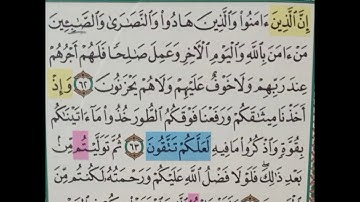 إِنَّ ٱلَّذِينَ ءَامَنُوا۟ وَٱلَّذِينَ هَادُوا۟ وَٱلنَّصَـٰرَىٰ وَٱلصَّـٰبِـِٔينَ
مَنْ ءَامَنَ بِٱللَّهِ وَٱلْيَوْمِ ٱلْـَٔاخِرِ وَعَمِلَ صَـٰلِحًا فَلَهُمْ أَجْرُهُمْ
عِندَ رَبِّهِمْ وَلَا خَوْفٌ عَلَيْهِمْ وَلَا هُمْ يَحْزَنُونَ ٦٢ وَإِذْ
أَخَذْنَا مِيثَـٰقَكُمْ وَرَفَعْنَا فَوْقَكُمُ ٱلطُّورَ خُذُوا۟ مَآ ءَاتَيْنَـٰكُم
بِقُوَّةٍ وَٱذْكُرُوا۟ مَا فِيهِ لَعَلَّكُمْ تَتَّقُونَ ٦٣ ثُمَّ تَوَلَّيْتُم مِّنۢ
بَعْدِ ذَٰلِكَ ۖ فَلَوْلَا فَضْلُ ٱللَّهِ عَلَيْكُمْ وَرَحْمَتُهُۥ لَكُنتُم مِّنَ